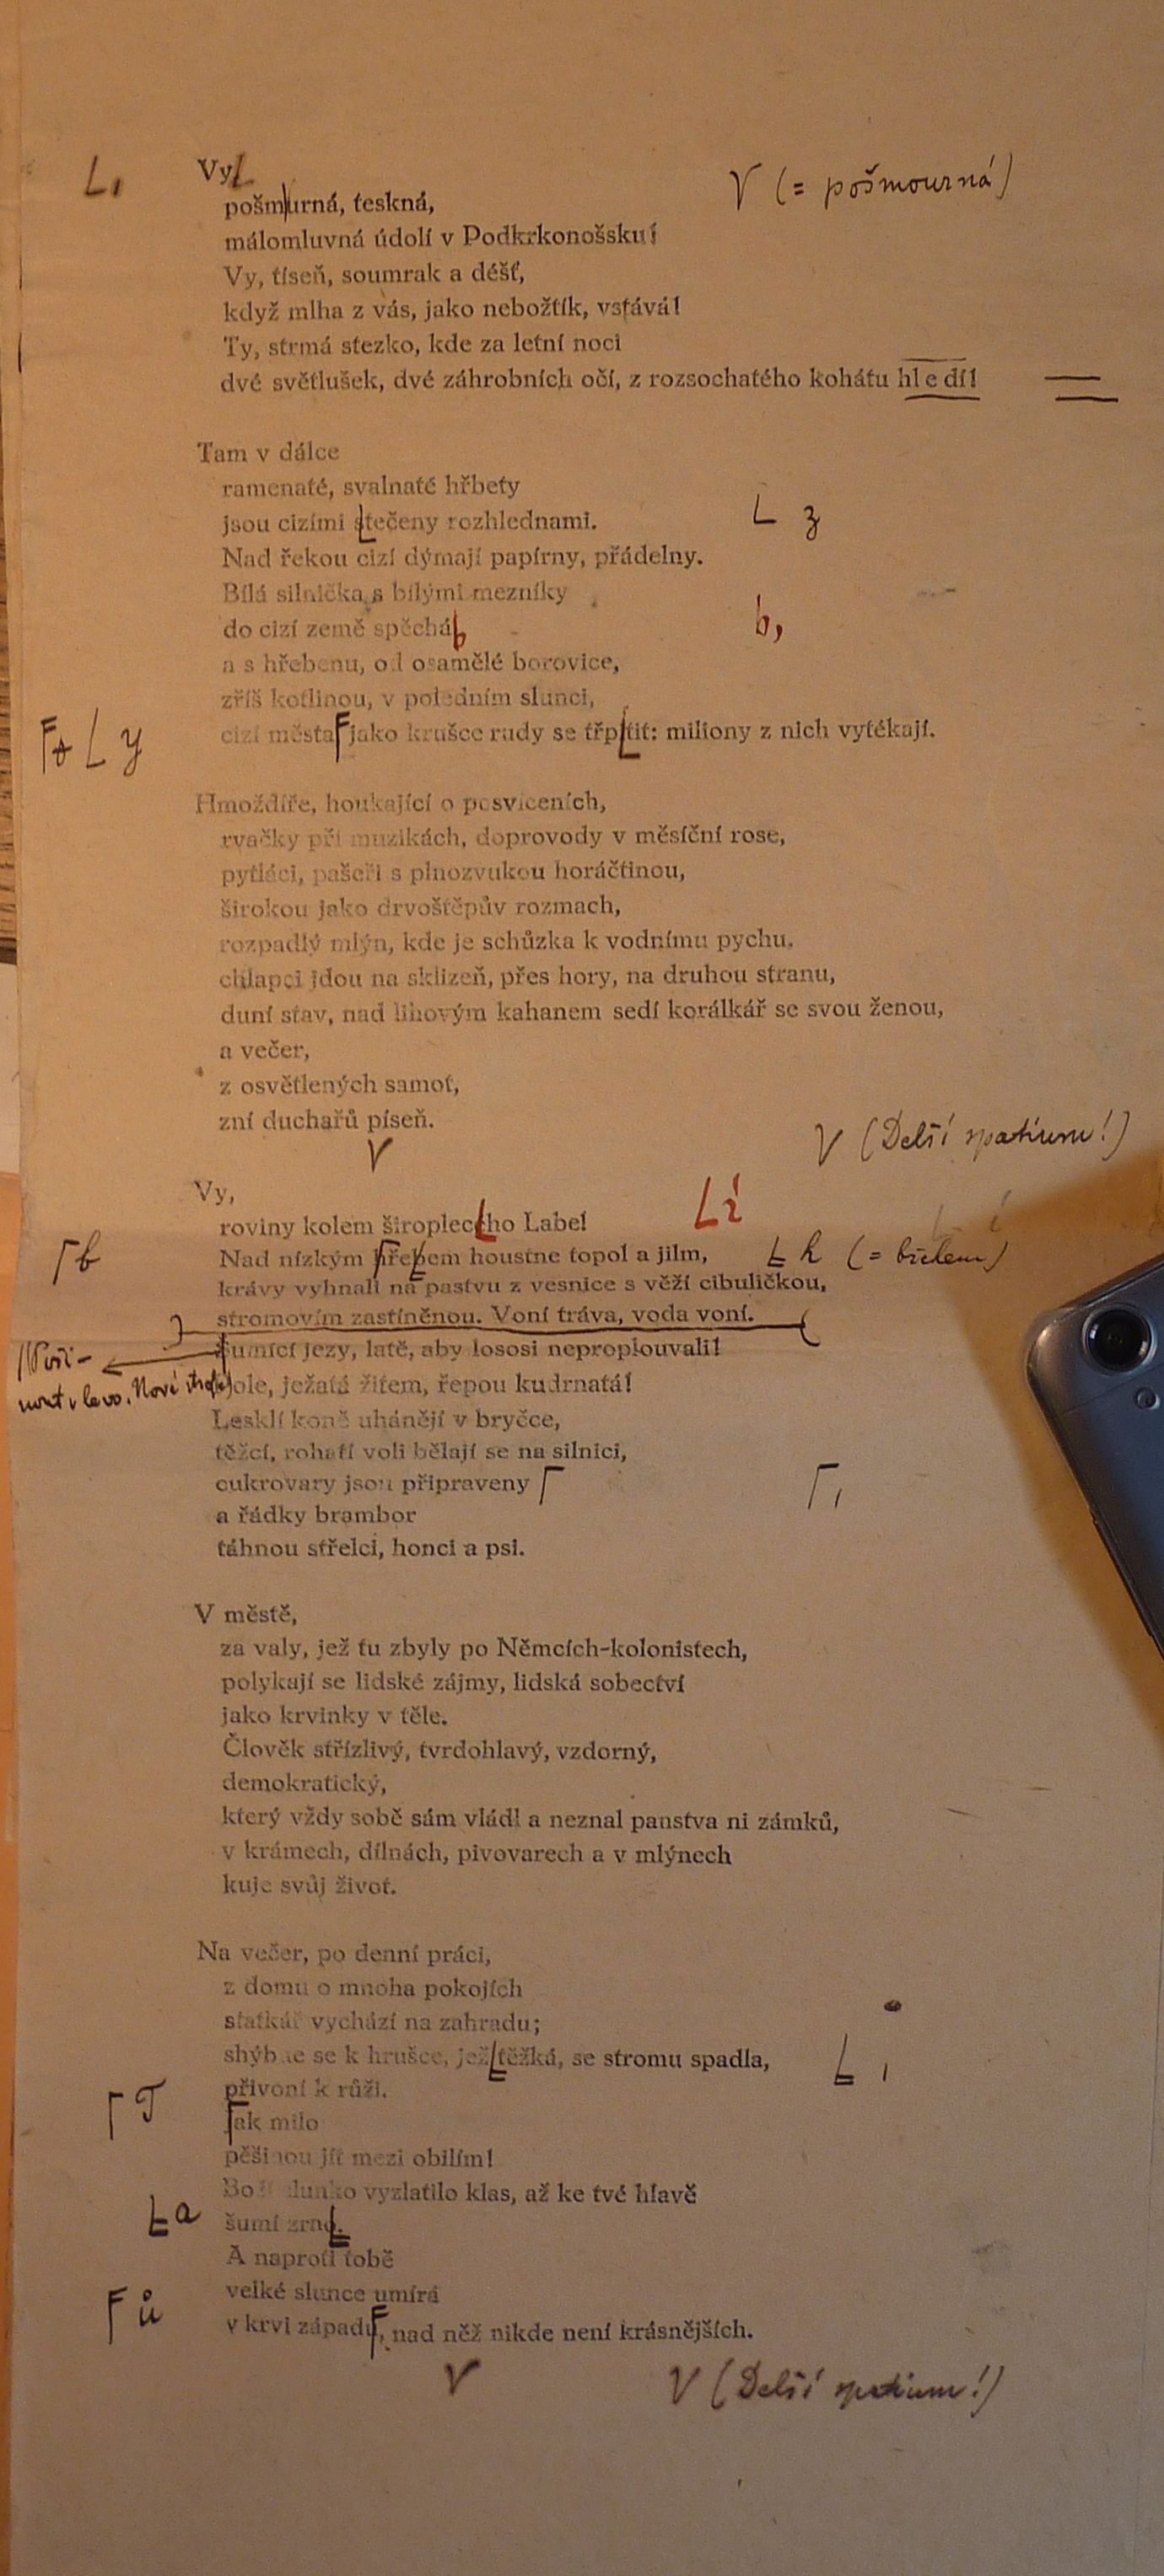 L,
Vy
V (= pošmourná)
pošmurná, teskná,
málomluvná údolí v Podkrkonošsku!
Vy, tíseň, soumrak a déšť,
když mlha z vás, jako nebožtík, vstává!
Ty, strmá stezko, kde za letní noci
dvé světlušek, dvé záhrobních očí, z rozsochatého kohátu hledí!
Tam v dálce
ramenaté, svalnaté hřbety
jsou cizími stečeny rozhlednami.
L z
Nad řekou cizí dýmají papírny, přádelny.
Bílá silnička s bílými mezníky
do cizí země spěchá
a s hřebenu, od osamělé borovice,
zříš kotlinou, v poledním slunci,
L y
cizí města jako krušce rudy se třptit: miliony z nich vytékají.
Hmoždíře, houkající o posvíceních,
rvačky při muzikách, doprovody v měsíční rose,
pytláci, pašeři s plnozvukou horáčtinou,
širokou jako drvoštěpův rozmach,
rozpadlý mlýn, kde je schůzka k vodnímu pychu,
chlapci jdou na sklizeň, přes hory, na druhou stranu,
duní stav, nad lihovým kahanem sedí korálkář se svou ženou,
a večer,
z osvětlených samot,
zní duchařů píseň.
V
V (Delší spatium!)
Vy,
roviny kolem široplecého Labe!
L í
b
Nad nízkým hřebem houstne topol a jilm,
L h (= břehem)
krávy vyhnali na pastvu z vesnice s věží cibuličkou,
stromovím zastíněnou. Voní tráva, voda voní.
Šumící jezy, latě, aby lososi neproplouvali!
vlevo. Nová
Pole, ježatá žitem, řepou kudrnatá!
Lesklí koně uhánějí v bryčce,
těžcí, rohatí voli bělají se na silnici,
cukrovary jsou připraveny
Γ,
a řádky brambor
táhnou střelci, honci a psi.
V městě,
za valy, jež tu zbyly po Němcích-kolonistech,
polykají se lidské zájmy, lidská sobectví
jako krvinky v těle.
Člověk střízlivý, tvrdohlavý, vzdorný,
demokratický,
který vždy sobě sám vládl a neznal panstva ni zámků,
v krámech, dílnách, pivovarech a v mlýnech
kuje svůj život.
Na večer, po denní práci,
z domu o mnoha pokojích
statkář vychází na zahradu;
shýbne se k hrušce, jež těžká, se stromu spadla,
L ,
přivoní k růži.
Γ T
Jak milo
pěšinou jít mezi obilím!
Boží slunko vyzlatilo klas, až ke tvé hlavě
L a
šumí zrno.
A naproti tobě
velké slunce umírá
F ů
v krvi západu, nad něž nikde není krásnějších.
V
V (Delší spatium!)